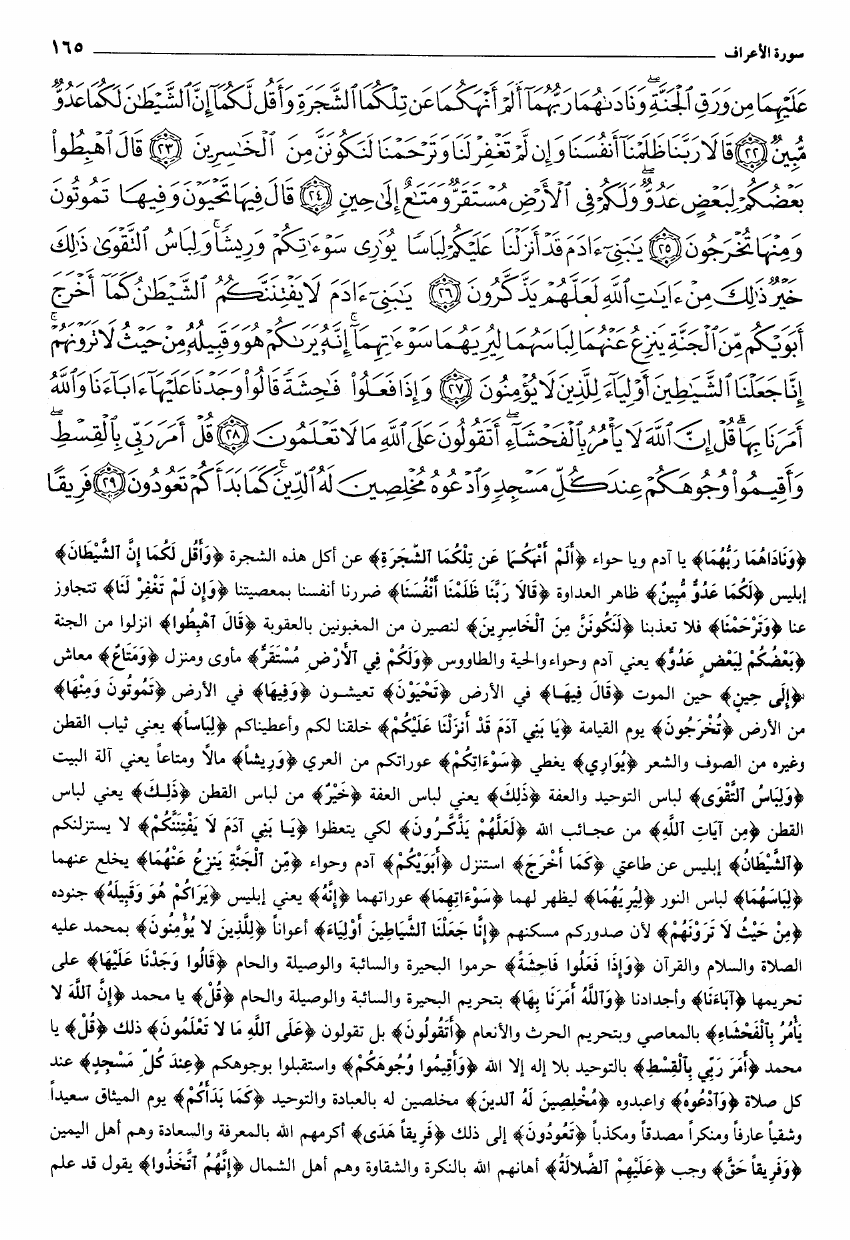 سورة الأعراف ١٦٥
عَلَيْهِمَا مِن وَرَقِ ٱلْجَنَّةِ ۖ وَنَادَىٰهُمَا رَبُّهُمَآ أَلَمْ أَنْهَكُمَا عَن تِلْكُمَا ٱلشَّجَرَةِ وَأَقُل لَّكُمَآ إِنَّ ٱلشَّيْطَـٰنَ لَكُمَا عَدُوٌّ
مُّبِينٌ ﴿٢٢﴾ قَالَا رَبَّنَا ظَلَمْنَآ أَنفُسَنَا وَإِن لَّمْ تَغْفِرْ لَنَا وَتَرْحَمْنَا لَنَكُونَنَّ مِنَ ٱلْخَـٰسِرِينَ ﴿٢٣﴾ قَالَ ٱهْبِطُوا۟
بَعْضُكُمْ لِبَعْضٍ عَدُوٌّ ۖ وَلَكُمْ فِى ٱلْأَرْضِ مُسْتَقَرٌّ وَمَتَـٰعٌ إِلَىٰ حِينٍ ﴿٢٤﴾ قَالَ فِيهَا تَحْيَوْنَ وَفِيهَا تَمُوتُونَ
وَمِنْهَا تُخْرَجُونَ ﴿٢٥﴾ يَـٰبَنِىٓ ءَادَمَ قَدْ أَنزَلْنَا عَلَيْكُمْ لِبَاسًا يُوَٰرِى سَوْءَٰتِكُمْ وَرِيشًا ۖ وَلِبَاسُ ٱلتَّقْوَىٰ ذَٰلِكَ
خَيْرٌ ۚ ذَٰلِكَ مِنْ ءَايَـٰتِ ٱللَّهِ لَعَلَّهُمْ يَذَّكَّرُونَ ﴿٢٦﴾ يَـٰبَنِىٓ ءَادَمَ لَا يَفْتِنَنَّكُمُ ٱلشَّيْطَـٰنُ كَمَآ أَخْرَجَ
أَبَوَيْكُم مِّنَ ٱلْجَنَّةِ يَنزِعُ عَنْهُمَا لِبَاسَهُمَا لِيُرِيَهُمَا سَوْءَٰتِهِمَآ ۗ إِنَّهُۥ يَرَىٰكُمْ هُوَ وَقَبِيلُهُۥ مِنْ حَيْثُ لَا تَرَوْنَهُمْ ۗ
إِنَّا جَعَلْنَا ٱلشَّيَـٰطِينَ أَوْلِيَآءَ لِلَّذِينَ لَا يُؤْمِنُونَ ﴿٢٧﴾ وَإِذَا فَعَلُوا۟ فَـٰحِشَةً قَالُوا۟ وَجَدْنَا عَلَيْهَآ ءَابَآءَنَا وَٱللَّهُ
أَمَرَنَا بِهَا ۗ قُلْ إِنَّ ٱللَّهَ لَا يَأْمُرُ بِٱلْفَحْشَآءِ ۖ أَتَقُولُونَ عَلَى ٱللَّهِ مَا لَا تَعْلَمُونَ ﴿٢٨﴾ قُلْ أَمَرَ رَبِّى بِٱلْقِسْطِ ۖ
وَأَقِيمُوا۟ وُجُوهَكُمْ عِندَ كُلِّ مَسْجِدٍ وَٱدْعُوهُ مُخْلِصِينَ لَهُ ٱلدِّينَ ۚ كَمَا بَدَأَكُمْ تَعُودُونَ ﴿٢٩﴾ فَرِيقًا
﴿وَنَادَاهُمَا رَبُّهُمَا﴾ يا آدم ويا حواء ﴿أَلَمْ أَنْهَكُمَا عَن تِلْكُمَا ٱلشَّجَرَةِ﴾ عن أكل هذه الشجرة ﴿وَأَقُل لَكُمَا إِنَّ ٱلشَّيْطَانَ﴾
إبليس ﴿لَكُمَا عَدُوٌّ مُّبِينٌ﴾ ظاهر العداوة ﴿قَالَا رَبَّنَا ظَلَمْنَا أَنْفُسَنَا﴾ ضررنا أنفسنا بمعصيتنا ﴿وَإِن لَمْ تَغْفِرْ لَنَا﴾ تتجاوز
عنا ﴿وَتَرْحَمْنَا﴾ فلا تعذبنا ﴿لَنَكُونَنَّ مِنَ ٱلْخَاسِرِينَ﴾ لنصيرن من المغبونين بالعقوبة ﴿قَالَ ٱهْبِطُوا﴾ انزلوا من الجنة
﴿بَعْضُكُمْ لِبَعْضٍ عَدُوٌّ﴾ يعني آدم وحواء والحية والطاووس ﴿وَلَكُمْ فِي ٱلْأَرْضِ مُسْتَقَرٌّ﴾ مأوى ومنزل ﴿وَمَتَاعٌ﴾ معاش
﴿إِلَى حِينٍ﴾ حين الموت ﴿قَالَ فِيهَا﴾ في الأرض ﴿تَحْيَوْنَ﴾ تعيشون ﴿وَفِيهَا﴾ في الأرض ﴿تَمُوتُونَ وَمِنْهَا﴾
من الأرض ﴿تُخْرَجُونَ﴾ يوم القيامة ﴿يَا بَنِي آدَمَ قَدْ أَنزَلْنَا عَلَيْكُمْ﴾ خلقنا لكم وأعطيناكم ﴿لِبَاساً﴾ يعني ثياب القطن
وغيره من الصوف والشعر ﴿يُوَارِي﴾ يغطي ﴿سَوْءَاتِكُمْ﴾ عوراتكم من العري ﴿وَرِيشاً﴾ مالاً ومتاعاً يعني آلة البيت
﴿وَلِبَاسُ ٱلتَّقْوَى﴾ لباس التوحيد والعفة ﴿ذَلِكَ﴾ يعني لباس العفة ﴿خَيْرٌ﴾ من لباس القطن ﴿ذَلِكَ﴾ يعني لباس
القطن ﴿مِن آيَاتِ ٱللَّهِ﴾ من عجائب الله ﴿لَعَلَّهُمْ يَذَّكَّرُونَ﴾ لكي يتعظوا ﴿يَا بَنِي آدَمَ لَا يَفْتِنَنَّكُمْ﴾ لا يستزلنكم
﴿ٱلشَّيْطَانُ﴾ إبليس عن طاعتي ﴿كَمَا أَخْرَجَ﴾ استنزل ﴿أَبَوَيْكُمْ﴾ آدم وحواء ﴿مِّنَ ٱلْجَنَّةِ يَنزِعُ عَنْهُمَا﴾ يخلع عنهما
﴿لِبَاسَهُمَا﴾ لباس النور ﴿لِيُرِيَهُمَا﴾ ليظهر لهما ﴿سَوْءَاتِهِمَا﴾ عوراتهما ﴿إِنَّهُ﴾ يعني إبليس ﴿يَرَاكُمْ هُوَ وَقَبِيلُهُ﴾ جنوده
﴿مِنْ حَيْثُ لَا تَرَوْنَهُمْ﴾ لأن صدوركم مسكنهم ﴿إِنَّا جَعَلْنَا ٱلشَّيَاطِينَ أَوْلِيَاءَ﴾ أعواناً ﴿لِلَّذِينَ لَا يُؤْمِنُونَ﴾ بمحمد عليه
الصلاة والسلام والقرآن ﴿وَإِذَا فَعَلُوا فَاحِشَةً﴾ حرموا البحيرة والسائبة والوصيلة والحام ﴿قَالُوا وَجَدْنَا عَلَيْهَا﴾ على
تحريمها ﴿آبَاءَنَا﴾ وأجدادنا ﴿وَٱللَّهُ أَمَرَنَا بِهَا﴾ بتحريم البحيرة والسائبة والوصيلة والحام ﴿قُلْ﴾ يا محمد ﴿إِنَّ ٱللَّهَ لَا
يَأْمُرُ بِٱلْفَحْشَاءِ﴾ بالمعاصي وبتحريم الحرث والأنعام ﴿أَتَقُولُونَ﴾ بل تقولون ﴿عَلَى ٱللَّهِ مَا لَا تَعْلَمُونَ﴾ ذلك ﴿قُلْ﴾ يا
محمد ﴿أَمَرَ رَبِّي بِٱلْقِسْطِ﴾ بالتوحيد بلا إله إلا الله ﴿وَأَقِيمُوا وُجُوهَكُمْ﴾ واستقبلوا بوجوهكم ﴿عِندَ كُلِّ مَسْجِدٍ﴾ عند
كل صلاة ﴿وَٱدْعُوهُ﴾ واعبدوه ﴿مُخْلِصِينَ لَهُ ٱلدينَ﴾ مخلصين له بالعبادة والتوحيد ﴿كَمَا بَدَأَكُمْ﴾ يوم الميثاق سعيداً
وشقياً عارفاً ومنكراً مصدقاً ومكذباً ﴿تَعُودُونَ﴾ إلى ذلك ﴿فَرِيقاً هَدَى﴾ أكرمهم الله بالمعرفة والسعادة وهم أهل اليمين
﴿وَفَرِيقاً حَقَّ﴾ وجب ﴿عَلَيْهِمُ ٱلضَّلَالَةُ﴾ أهانهم الله بالنكرة والشقاوة وهم أهل الشمال ﴿إِنَّهُمُ ٱتَّخَذُوا﴾ يقول قد علم